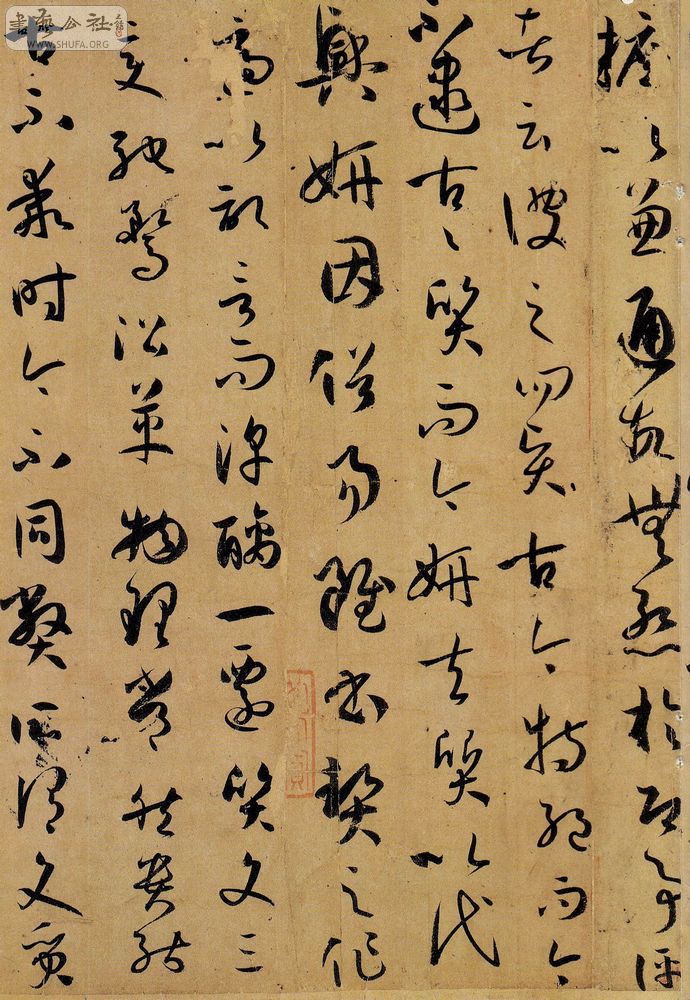 摭以兼通故無慙於即事評
者云彼之四賢古今特絕而今
不逮古〻質而今妍夫質以代
興妍因俗易雖書契之作
適以記言而淳醨一遷質文三
變馳騖沿革物理常然貴能
古不乖時今不同弊所謂文質
書藝公社
WWW.SHUFA.ORG